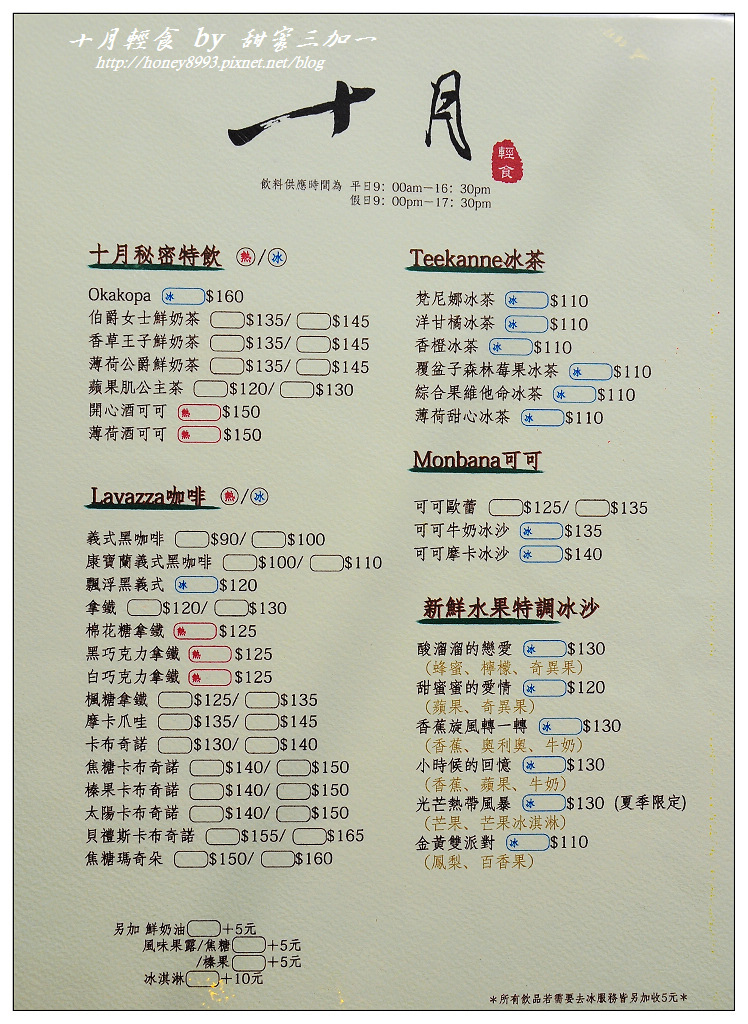 十月輕食 by 甜蜜三加一
http://honey8993.pixnet.net/blog
十月
輕食
飲料供應時間為 平日9：00am－16：30pm
假日9：00pm－17：30pm
十月秘密特飲 熱/冰
Okakopa 冰 $160
伯爵女士鮮奶茶 $135/ $145
香草王子鮮奶茶 $135/ $145
薄荷公爵鮮奶茶 $135/ $145
蘋果肌公主茶 $120/ $130
開心酒可可 熱 $150
薄荷酒可可 熱 $150
Lavazza咖啡 熱/冰
義式黑咖啡 $90/ $100
康寶蘭義式黑咖啡 $100/ $110
飄浮黑義式 冰 $120
拿鐵 $120/ $130
棉花糖拿鐵 熱 $125
黑巧克力拿鐵 熱 $125
白巧克力拿鐵 熱 $125
楓糖拿鐵 $125/ $135
摩卡爪哇 $135/ $145
卡布奇諾 $130/ $140
焦糖卡布奇諾 $140/ $150
榛果卡布奇諾 $140/ $150
太陽卡布奇諾 $140/ $150
貝禮斯卡布奇諾 $155/ $165
焦糖瑪奇朵 $150/ $160
另加 鮮奶油 ＋5元
風味果露/焦糖 ＋5元
/榛果 ＋5元
冰淇淋 ＋10元
Teekanne冰茶
梵尼娜冰茶 冰 $110
洋甘橘冰茶 冰 $110
香橙冰茶 冰 $110
覆盆子森林莓果冰茶 冰 $110
綜合果維他命冰茶 冰 $110
薄荷甜心冰茶 冰 $110
Monbana可可
可可歐蕾 $125/ $135
可可牛奶冰沙 冰 $135
可可摩卡冰沙 冰 $140
新鮮水果特調冰沙
酸溜溜的戀愛 冰 $130
（蜂蜜、檸檬、奇異果）
甜蜜蜜的愛情 冰 $120
（蘋果、奇異果）
香蕉旋風轉一轉 冰 $130
（香蕉、奧利奧、牛奶）
小時候的回憶 冰 $130
（香蕉、蘋果、牛奶）
光芒熱帶風暴 冰 $130（夏季限定）
（芒果、芒果冰淇淋）
金黃雙派對 冰 $110
（鳳梨、百香果）
＊所有飲品若需要去冰服務皆另加收5元＊